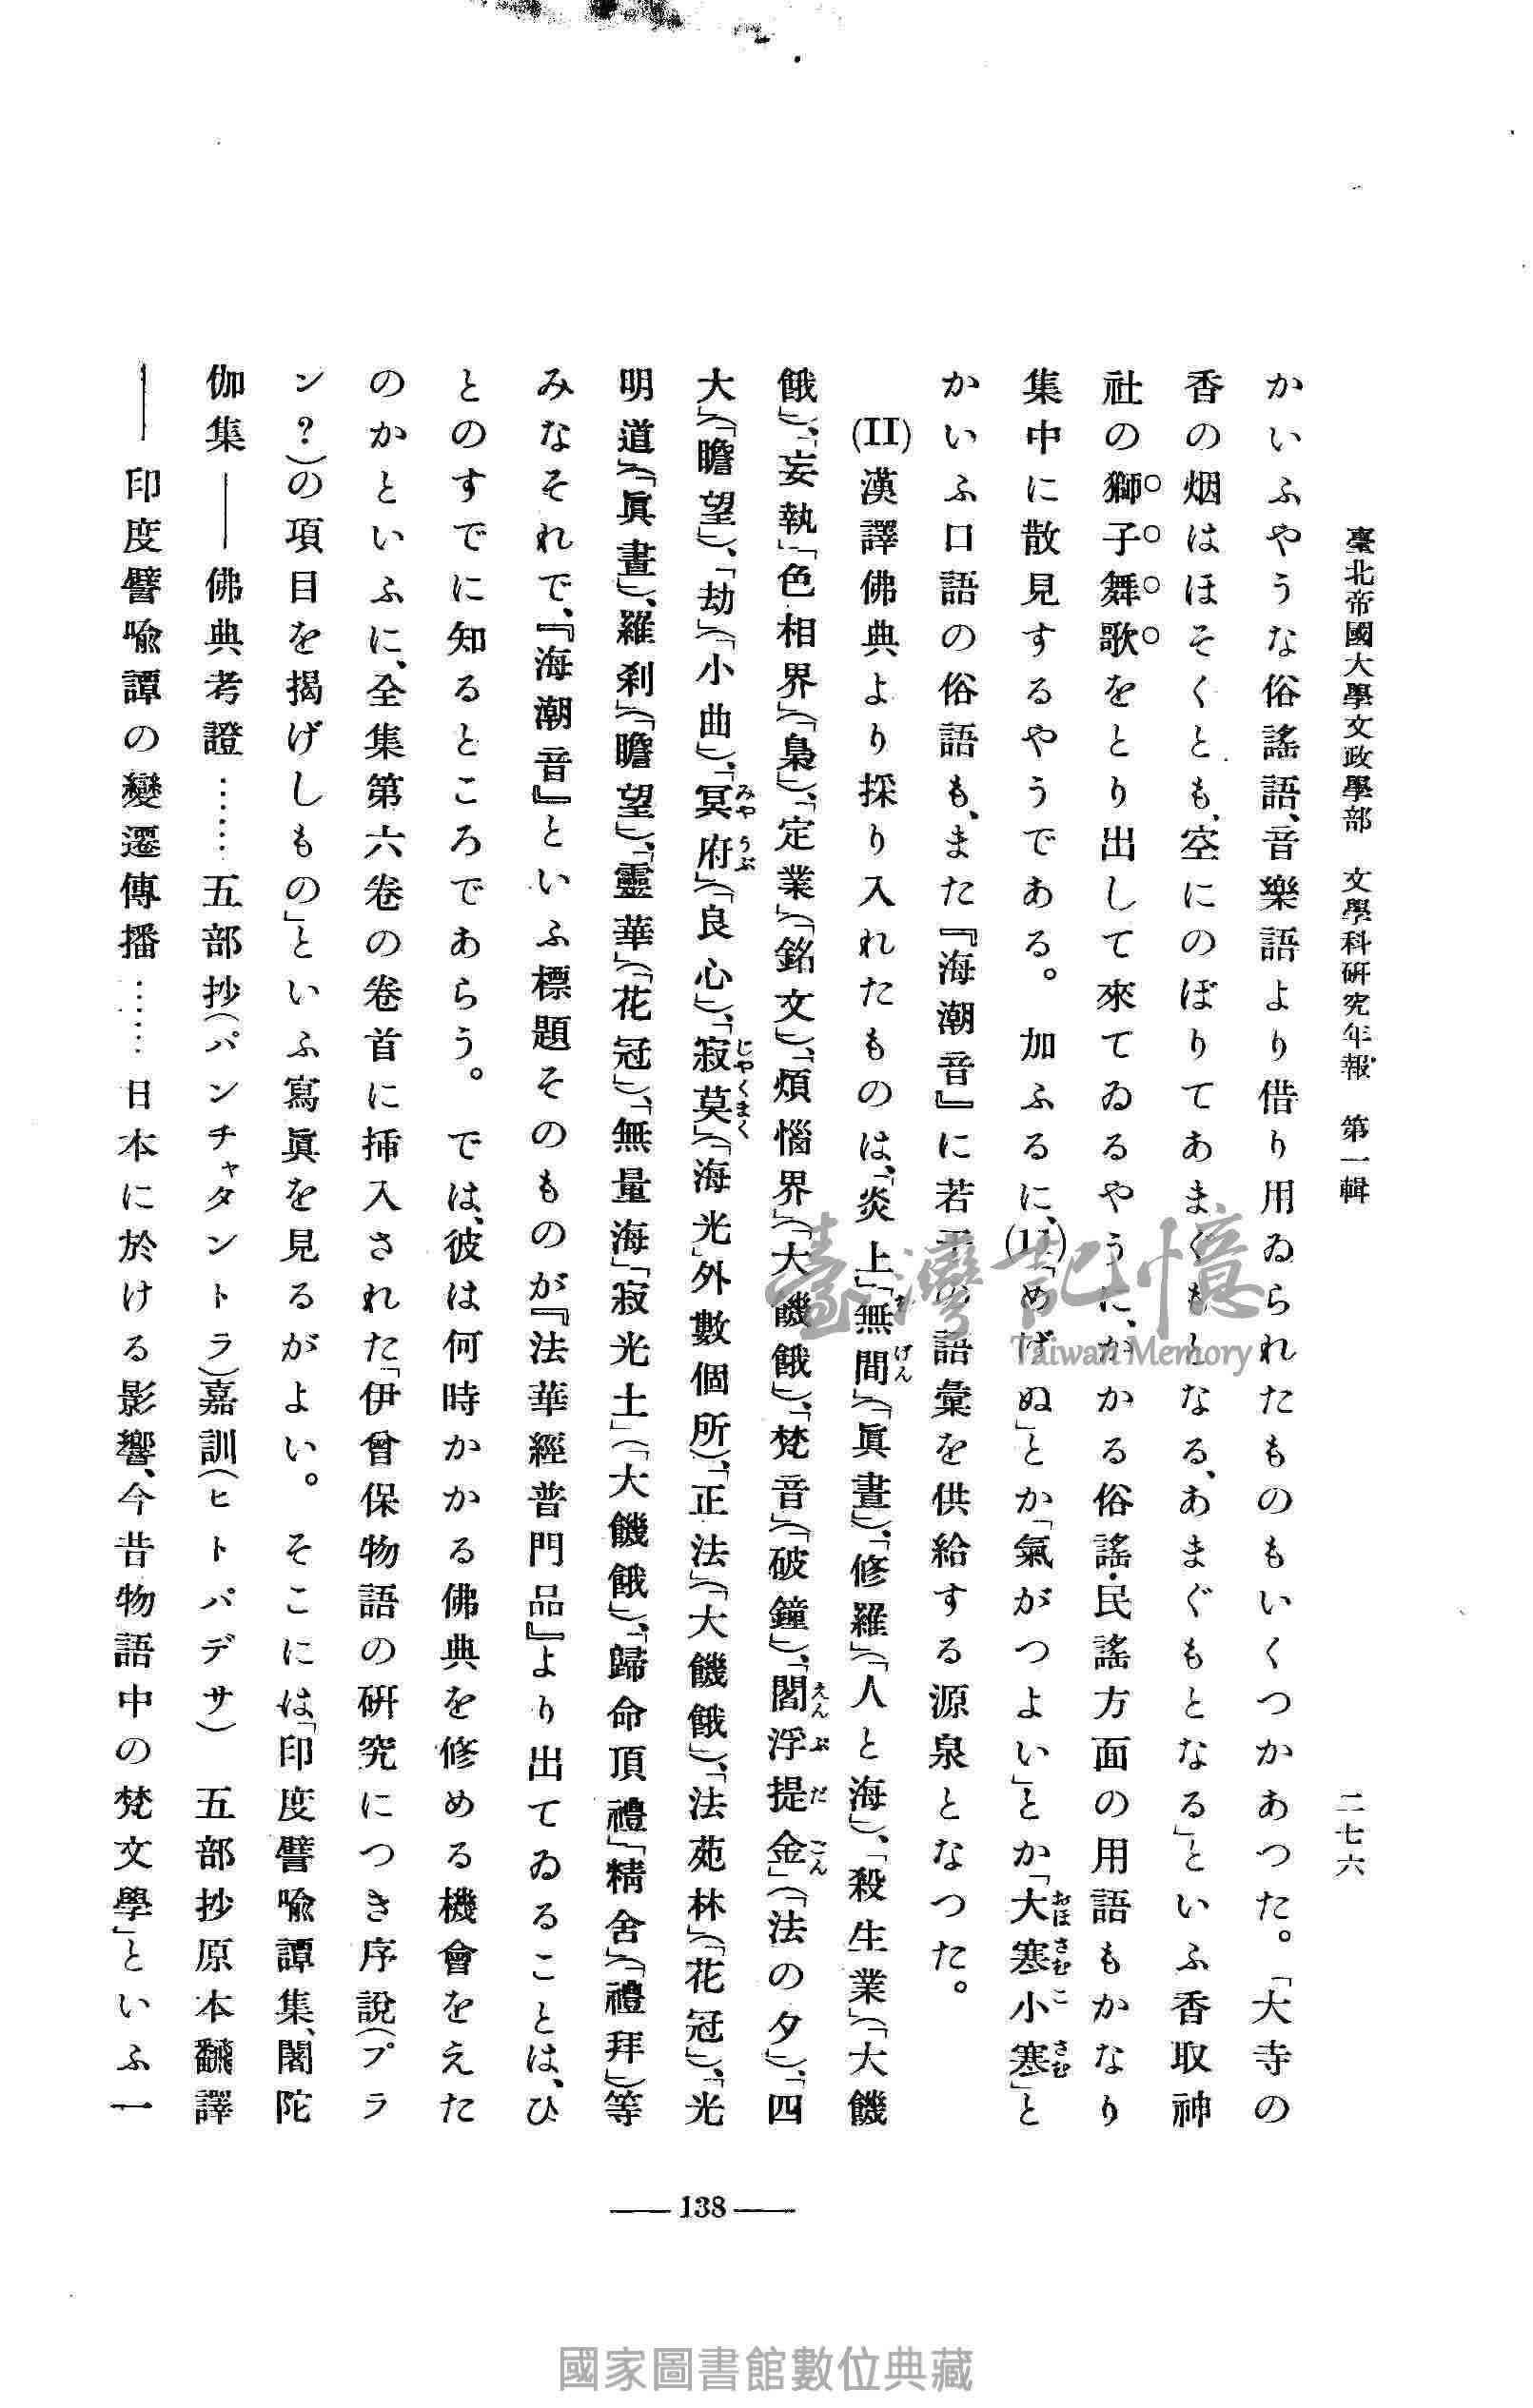 臺北帝國大學文政學部 文學科研究年報 第一輯 二七六
かいふやうな俗謠語、音樂語より借り用ゐられたものもいくつかあつた。「大寺の
香の烟はほそくとも、空にのぼりてあまぐもとなる、あまぐもとなる」といふ香取神
社の獅子舞歌をとり出して來てゐるやうに、かかる俗謠・民謠方面の用語もかなり
集中に散見するやうである。 加ふるに、(11)「めげぬ」とか「氣がつよい」とか「大寒小寒」と
かいふ口語の俗語も、また『海潮音』に若干の語彙を供給する源泉となつた。
(II)漢譯佛典より採り入れたものは、「炎上」「無間」(「眞晝」)、「修羅」(「人と海」)、「殺生業」(「大饑
餓」)、「妄執」「色相界」(「梟」)、「定業」(「銘文」)、「煩惱界」(「大饑餓」)、「梵音」(「破鐘」)、「閻浮提金」(「法の夕」)、「四
大」(「瞻望」)、「劫」(「小曲」)、「冥府」(「良心」)、「寂莫」(「海光」外數個所)、「正法」(「大饑餓」)、「法苑林」(「花冠」)、「光
明道」(「眞晝」)、羅刹」(「瞻望」)、「靈華」(「花冠」)、「無量海」「寂光土」(「大饑餓」)、「歸命頂禮」「精舍」(「禮拜」)等
みなそれで、『海潮音』といふ標題そのものが『法華經普門品』より出てゐることは、ひ
とのすでに知るところであらう。 では、彼は何時かかる佛典を修める機會をえた
のかといふに、全集第六卷の卷首に挿入された「伊曾保物語の研究につき序說(プラ
ン?)の項目を揭げしもの」といふ寫眞を見るがよい。 そこには、「印度譬喩譚集、闍陀
伽集——佛典考證……五部抄(パンチャタントラ)嘉訓(ヒトパデサ) 五部抄原本飜譯
——印度譬喩譚の變遷傳播……日本に於ける影響、今昔物語中の梵文學」といふ一
138
臺灣記憶
Taiwan Memory
國家圖書館數位典藏